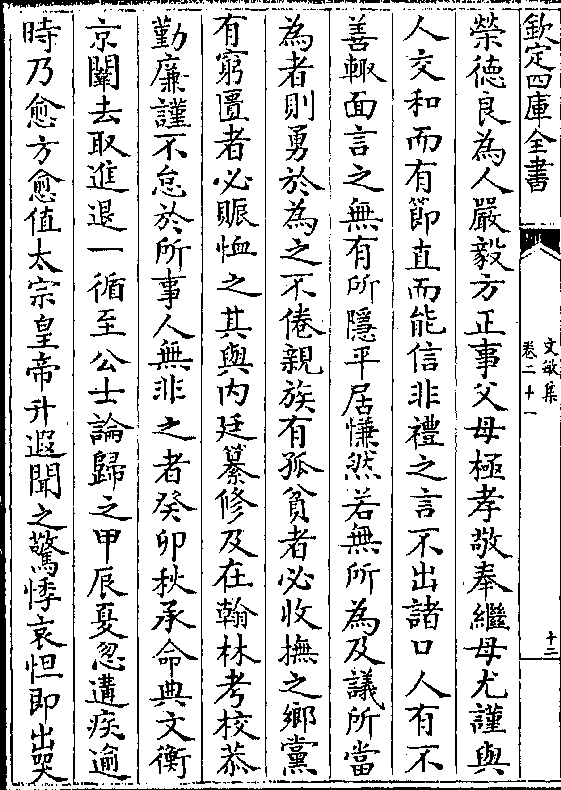 欽定四庫全書
文敏集
卷二十一
十二
榮德良為人嚴毅方正事父母極孝敬奉繼母尤謹與
人交和而有節直而能信非禮之言不出諸口人有不
善輙面言之無有所隱平居慊然若無所為及議所當
為者則勇於為之不倦親族有孤貧者必收撫之鄉黨
有窮匱者必賑恤之其與内廷纂修及在翰林考校恭
勤廉謹不怠於所事人無非之者癸卯秋承命典文衡
京闈去取進退一循至公士論歸之甲辰夏忽遘疾逾
時乃愈方愈值太宗皇帝升遐聞之驚悸哀怛即出哭